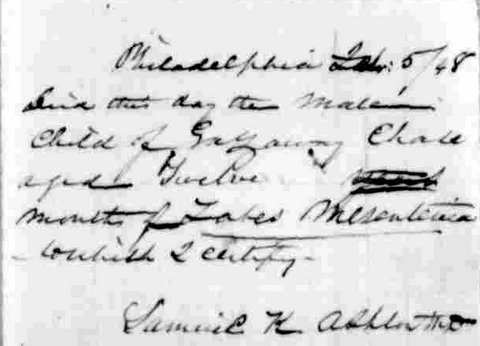 Philadelphia Feb: 5/48
Died this day the Male
Child of Chase
aged Twelve
months of Tabes Mesenterica
- to which I certify -
Samuel K Ashton MD